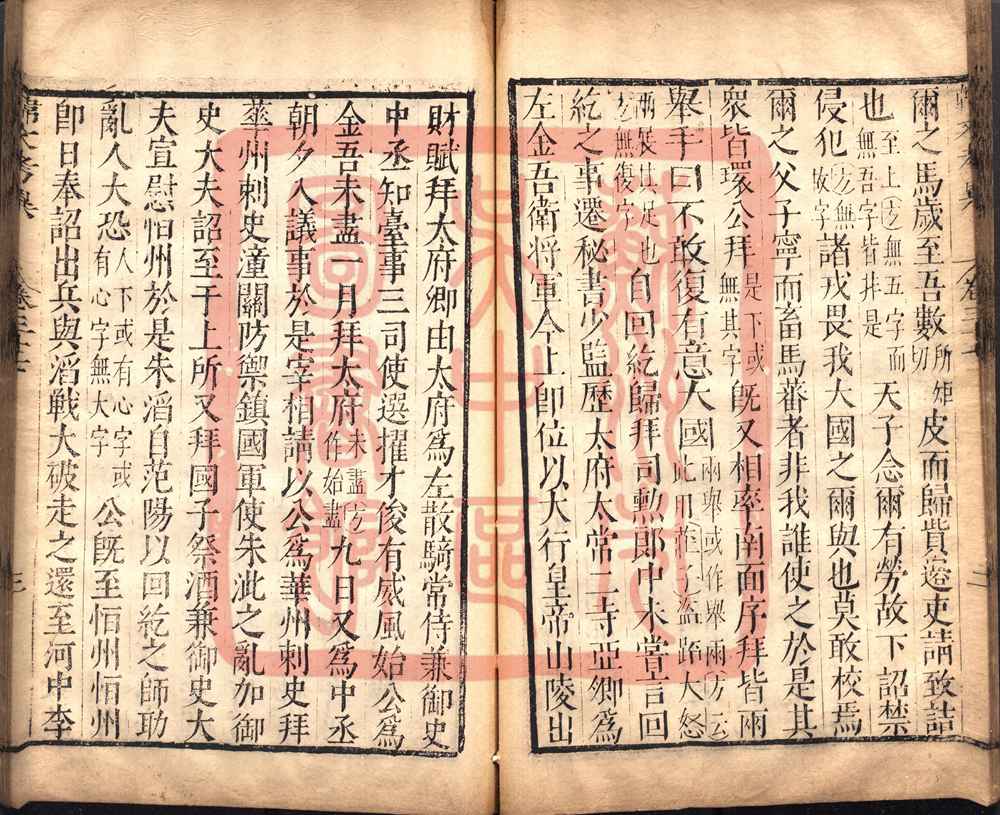 爾之馬歲至吾數所矩切皮而歸貲邊吏請致詰
也至上方無五字而無吾字皆非是天子念爾有勞故下詔禁
侵犯方無故字諸戎畏我大國之爾與也莫敢校焉
爾之父子寧而畜馬蕃者非我誰使之於是其
衆皆環公拜是下或無其字既又相率南面序拜皆兩
舉手曰不敢復有意大國兩舉或作舉兩方云此用莊子盜跖大怒
兩展其足也方無復字自回紇歸拜司勳郎中未嘗言回
紇之事遷秘書少監歷太府太常二寺亞卿爲
左金吾衛將軍今上卽位以大行皇帝山陵出
財賦拜太府卿由太府爲左散騎常侍兼御史
中丞知臺事三司使選擢才俊有威風始公爲
金吾未盡一月拜太府未盡方作始盡九日又爲中丞
朝夕入議事於是宰相請以公爲華州刺史拜
華州刺史潼關防禦鎮國軍使朱泚之亂加御
史大夫詔至于上所又拜國子祭酒兼御史大
夫宣慰恒州於是朱滔自范陽以回紇之師助
亂人大恐人下或有心字或有心字無大字公既至恒州恒州
卽日奉詔出兵與滔戰大破走之還至河中李
韓文考異
三